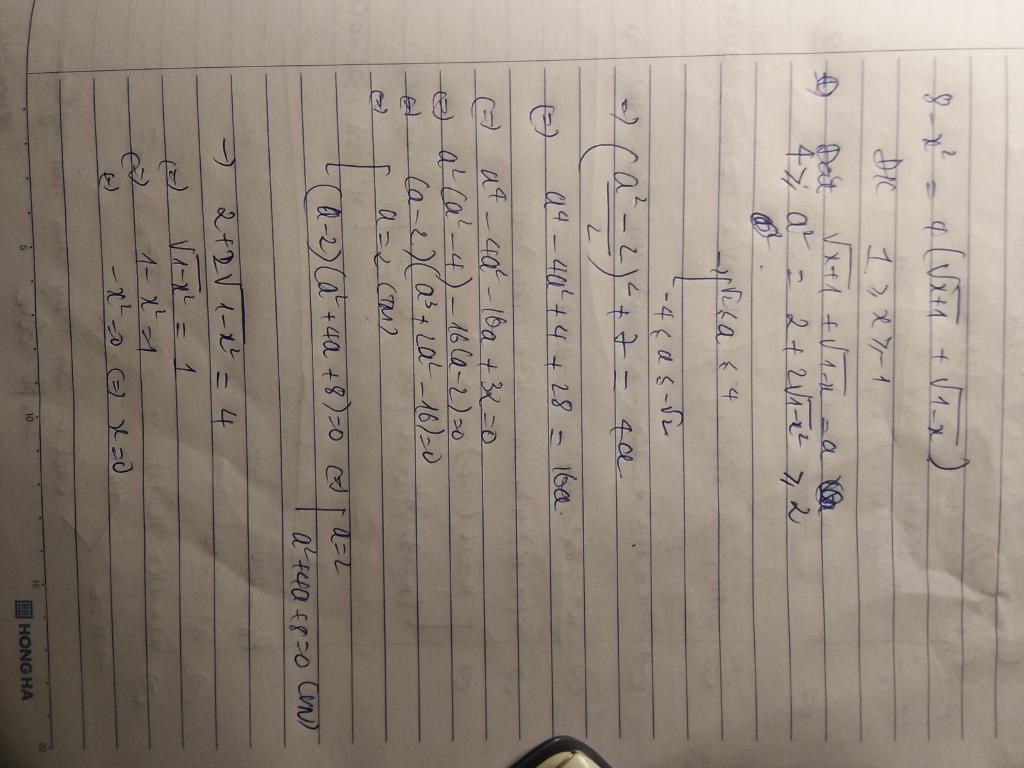 8 - x² = 4(√x+1 + √1-x)
ĐK 1 ⩾ x ⩾ -1
Đặt √x+1 + √1-x = a
4 ⩾ a² = 2 + 2√1-x² ⩾ 2
→ [ √2 ≤ a ≤ 4
-4 ≤ a ≤ -√2
→ (a² - 2 / 2)² + 7 = 4a
(=) a⁴ - 4a² + 4 + 28 = 16a
(=) a⁴ - 4a² - 16a + 32 = 0
(=) a²(a² - 4) - 16(a - 2) = 0
(=) (a - 2)(a³ + 2a² - 16) = 0
(=) [ a = 2 (TM)
(a - 2)(a² + 4a + 8) = 0 (=) [ a = 2
a² + 4a + 8 = 0 (VN)
→ 2 + 2√1-x² = 4
(=) √1-x² = 1
(=) 1 - x² = 1
(=) -x² = 0 (=) x = 0
5
10
15
20
HONG HA